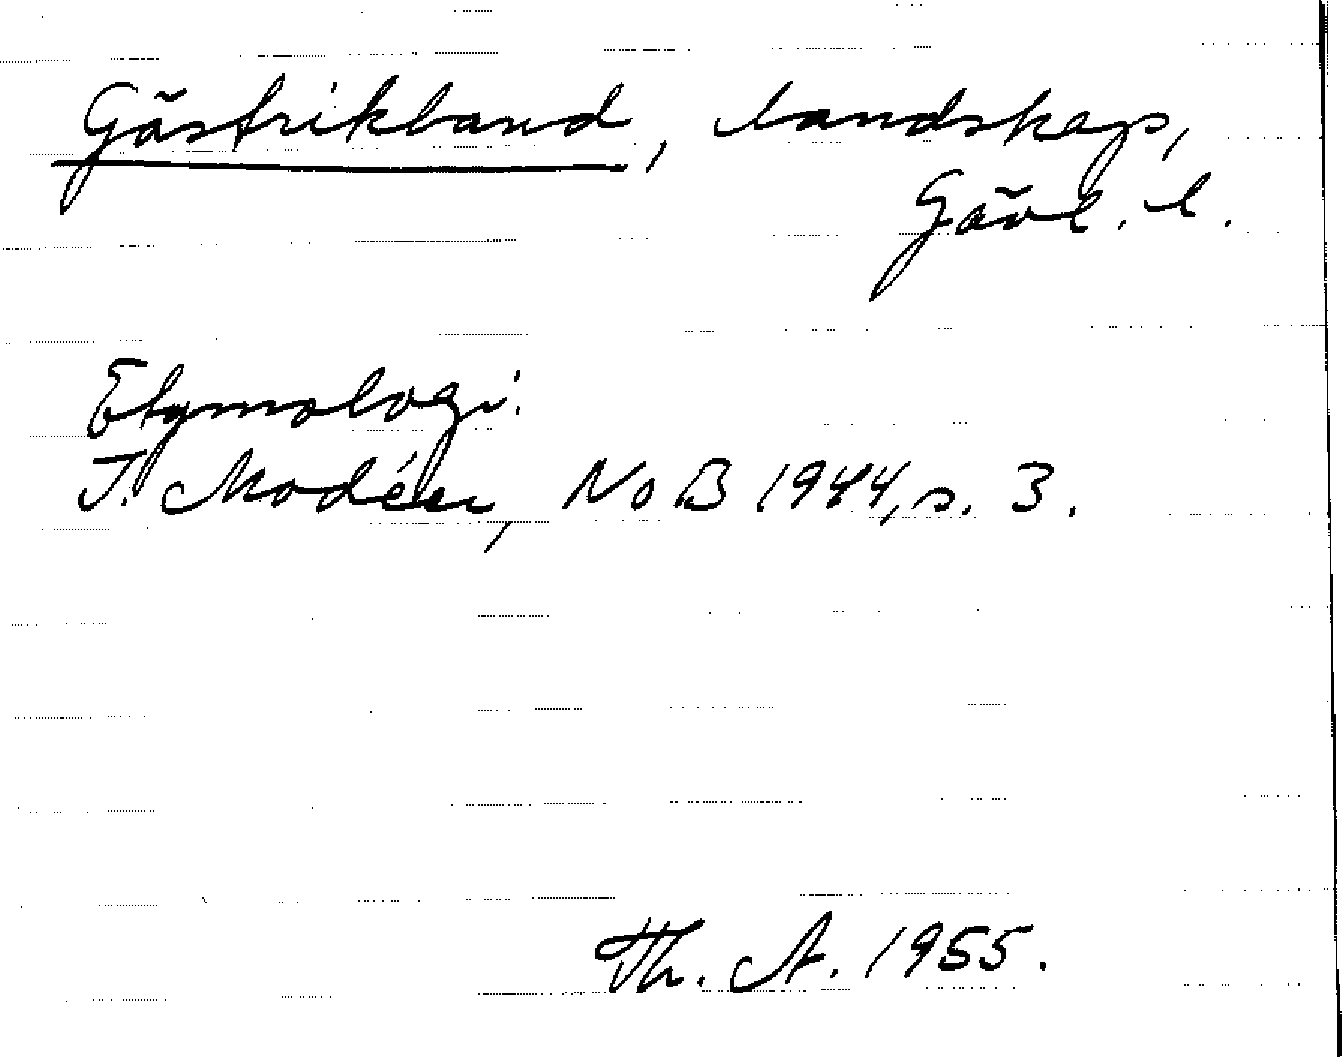 Gästrikland, landskap,
Gävl. l.
Etymologi:
I. Modéer, NoB 1944, s. 3.
Th. A. 1955.